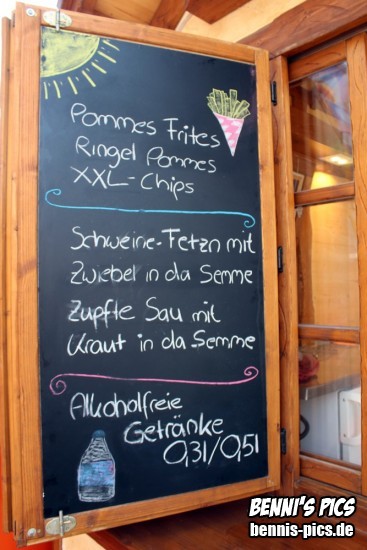 Pommes Frites
Ringel Pommes
XXL-Chips
Schweine-Fetzn mit
Zwiebel in da Semme
Zupfte Sau mit
Kraut in da Semme
Alkoholfreie
Getränke
0,3l/0,5l
BENNI'S PICS
bennis-pics.de